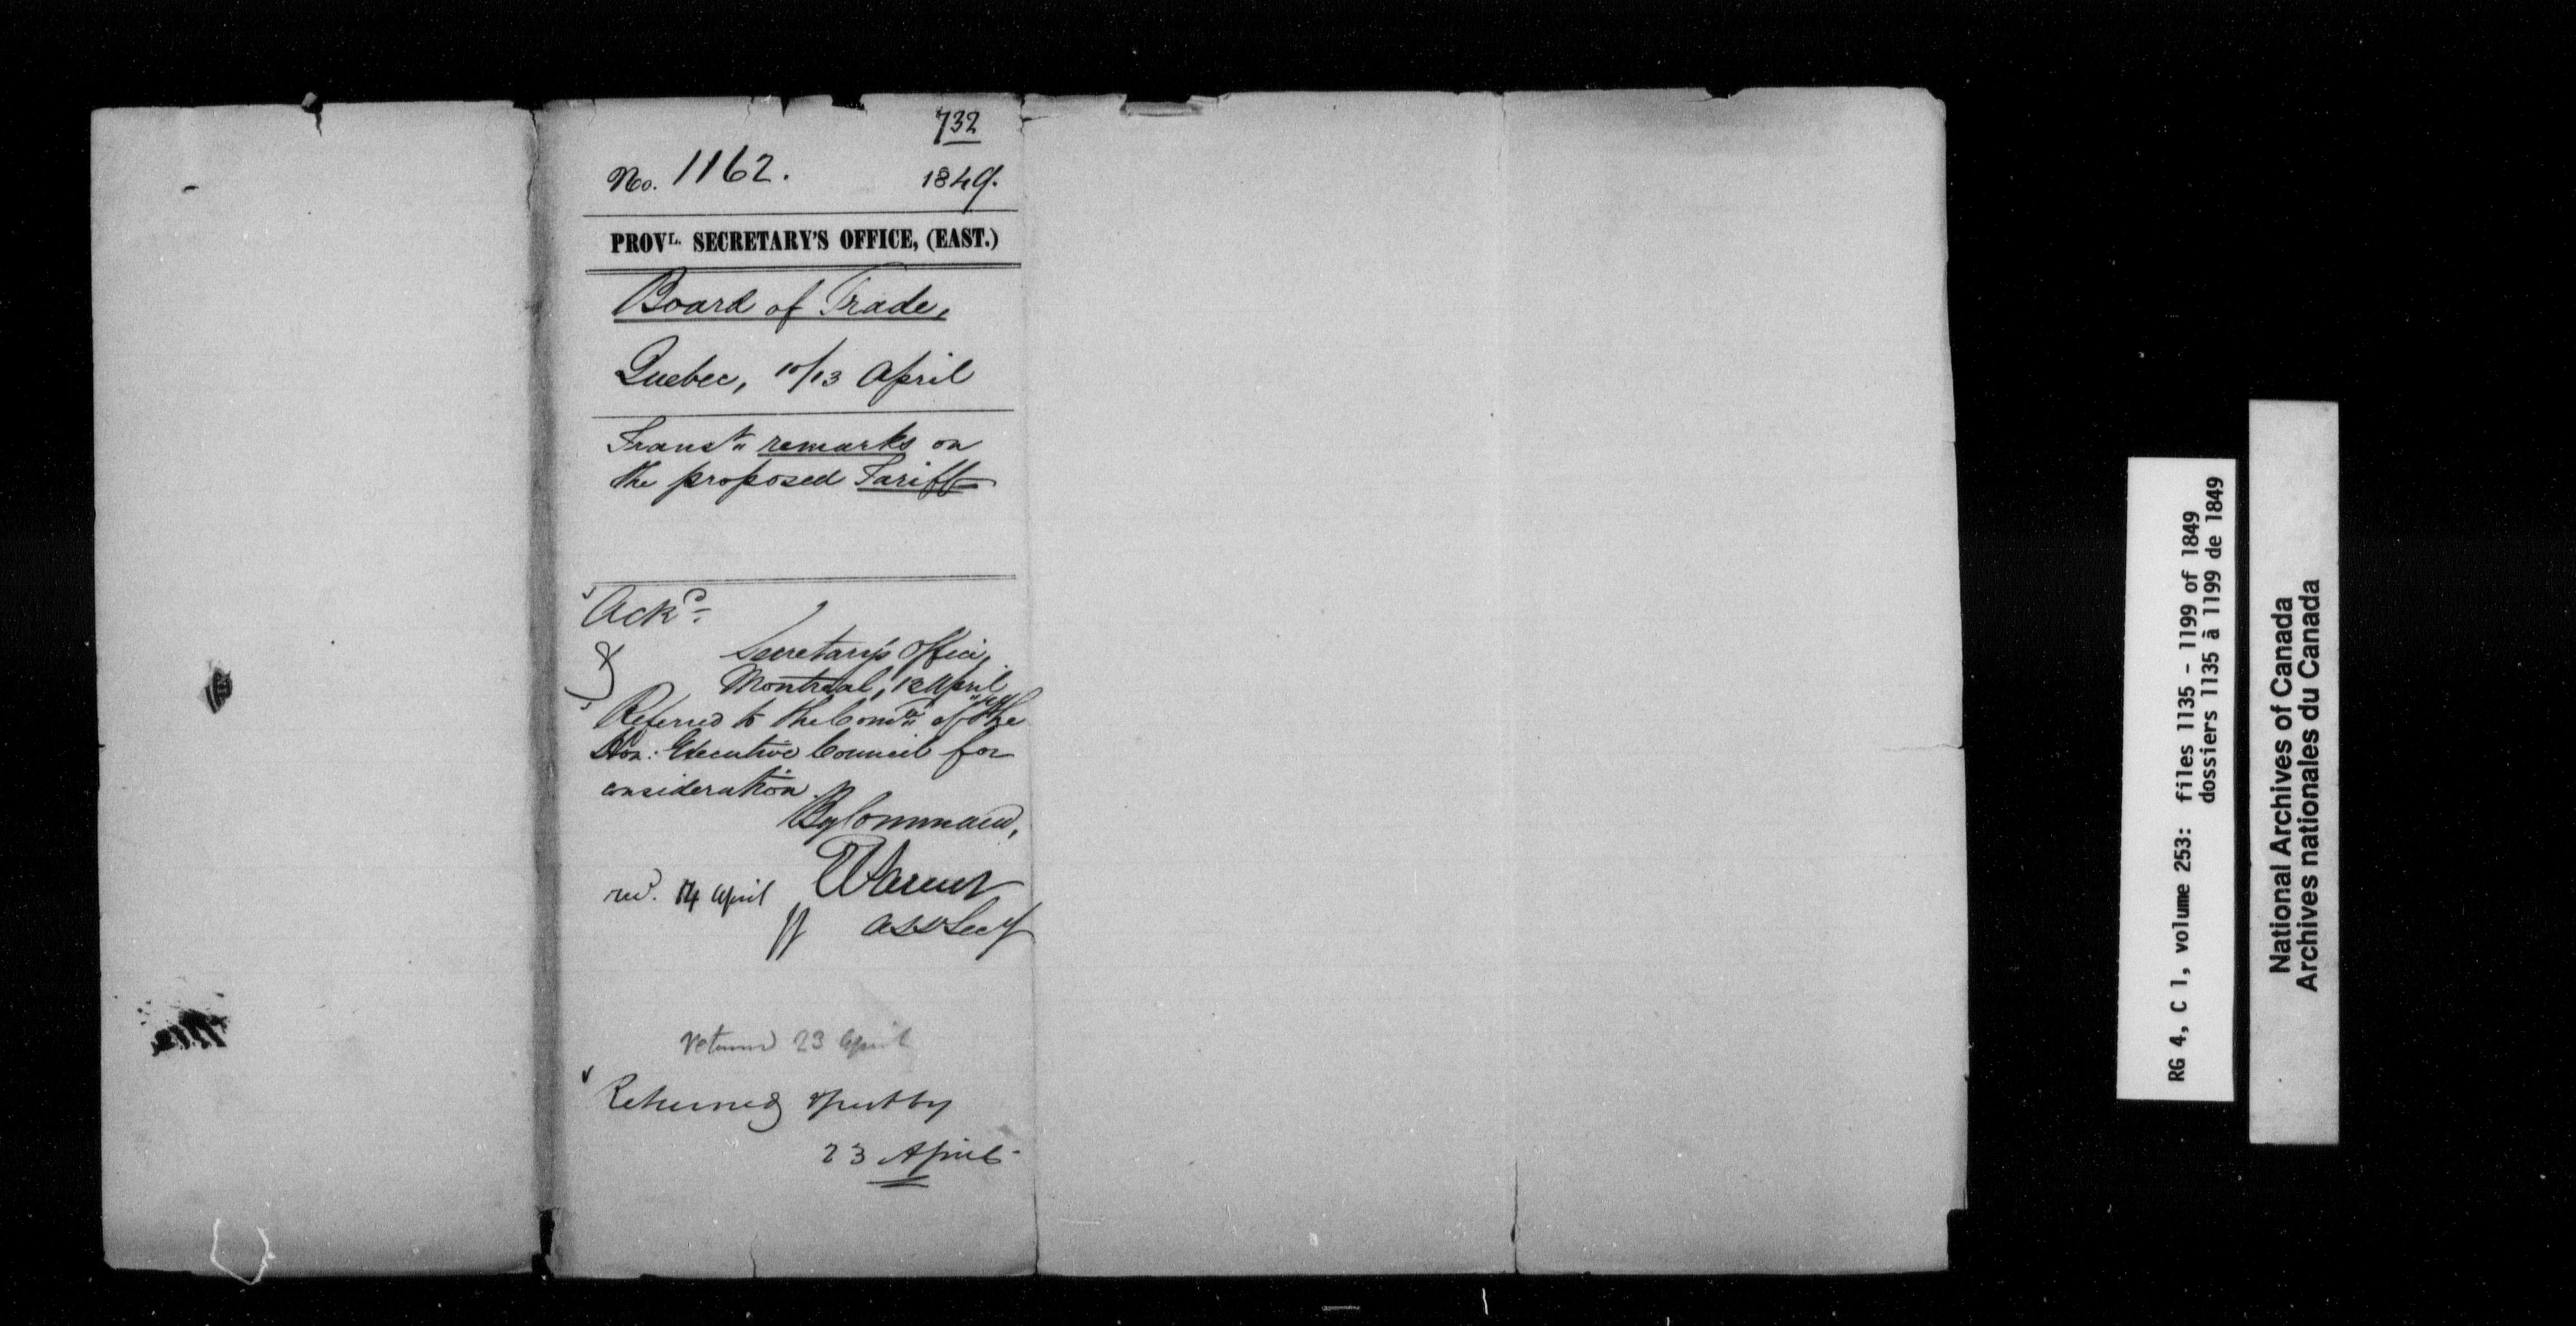 732
No. 1162. 1849.
PROVL. SECRETARY'S OFFICE, (EAST.)
Board of Trade,
Quebec, 10/13 April
remarks on
the proposed Tariff
Ackd.
Secretary's Office,
Montreal, April
Referred to the Comtee. of the
Hon: Executive Council for
consideration.
By Command,
E Parent
recd. 14 April
Ass Secy
Returned 23 April
Returned
23 April
RG 4, C 1, volume 253: files 1135 - 1199 of 1849
dossiers 1135 à 1199 de 1849
National Archives of Canada
Archives nationales du Canada